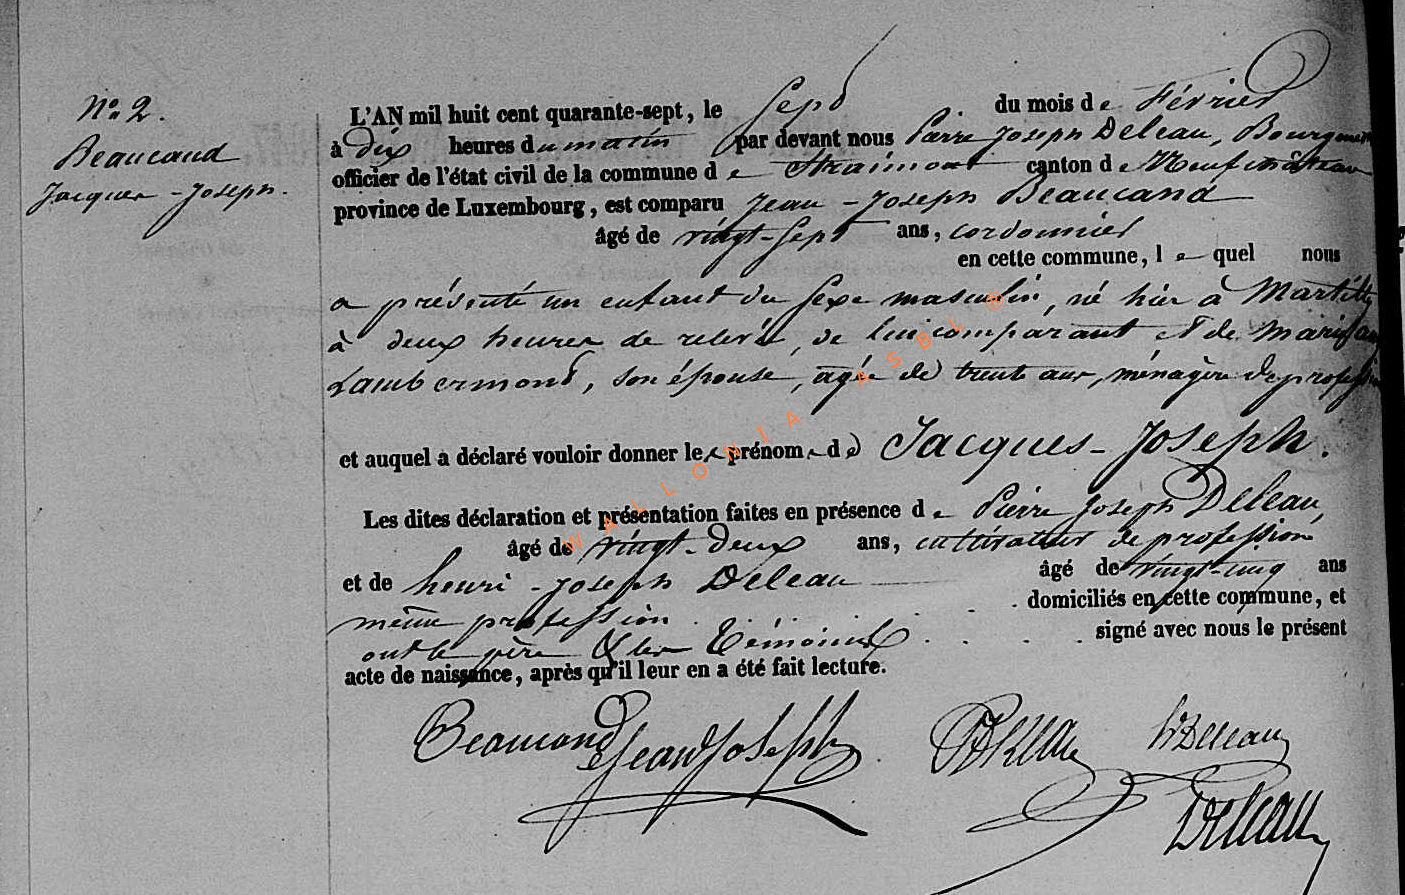 N° 2.
Beaucand
Jacques-Joseph.
L'AN mil huit cent quarante-sept, le Sept du mois de Février
à dix heures du matin par devant nous Pierre Joseph Deleau, Bourgmestre
officier de l'état civil de la commune de Straimont canton de Neufchâteau
province de Luxembourg, est comparu Jean-Joseph Beaucand
âgé de vingt-sept ans, cordonnier
en cette commune, lequel nous
a présenté un enfant du sexe masculin, né hier à
à deux heures de relevée, de lui comparant et de
Lambermont, son épouse, agée de trente ans, ménagère de profession
et auquel a déclaré vouloir donner les prénoms de Jacques-Joseph.
Les dites déclaration et présentation faites en présence de Pierre Joseph Deleau,
âgé de vingt-deux ans, cultivateur de profession
et de henri-Joseph Deleau âgé de vingt-cinq ans
même profession domiciliés en cette commune, et
ont le père & les témoins signé avec nous le présent
acte de naissance, après qu'il leur en a été fait lecture.
Beaucand Jean Joseph PJDeleau hDeleau
Deleau
WALLONIA ASBL ©